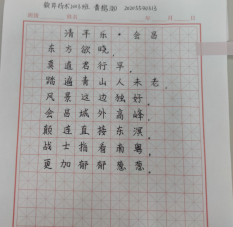 清平乐·会昌
东方欲晓，
莫道君行早。
踏遍青山人未老，
风景这边独好。
会昌城外高峰，
颠连直接东溟。
战士指看南粤，
更加郁郁葱葱。